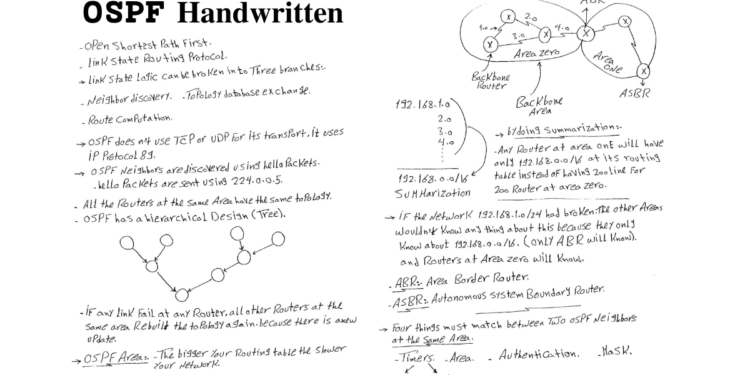 OSPF Handwritten
- OPen Shortest Path First.
- Link State Routing Protocol.
→ Link State Logic can be broken into Three branches:-
- Neighbor discovery. - ToPology database exchange.
- Route Computation.
→ OSPF does n't use TCP or UDP For its transPort, it uses
iP Protocol 89.
→ OSPF Neighbors are discovered using hello Packets.
- hello Packets are sent using 224.0.0.5.
- All the Routers at the Same Area have the same toPology.
- OSPF has a hierarchical Design (Tree).
- iF any link Fail at any Router, all other Routers at the
same area Rebuilt the toPology again because there is a new
uPdate.
→ OSPF Area:- - The bigger Your Routing table the slower
Your Network.
ABR
1.0
2.0
3.0
4.0
Area zero
Area
ONE
Backbone
Router
Backbone
Area
ASBR
192.168.1.0
2.0
3.0
4.0
192.168.0.0/16
SuMMarization
→ by doing Summarization:-
- Any Router at area onE will have
only 192.168.0.0/16 at its routing
table instead of having 200 line For
200 Router at area zero.
→ iF the Network 192.168.1.0/24 had broken the other Areas
wouldn't Know any thing about this because they only
Know about 192.168.0.0/16. (only ABR will Know).
and Routers at Area zero will Know.
- ABR:- Area Border Router.
- ASBR:- Autonomous System Boundary Router.
→ Four things must match between Two OSPF Neighbors
at the Same Area.
- Timers. - Area. - Authentication. - MaSK.